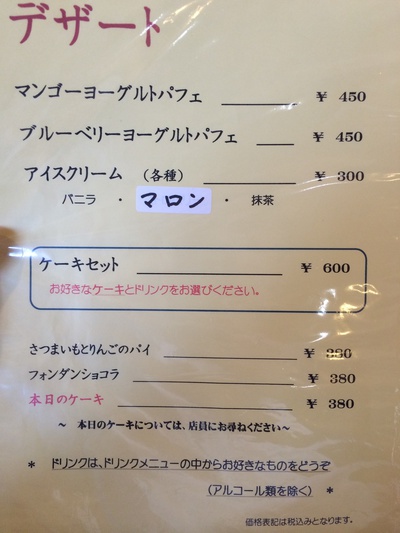 デザート
マンゴーヨーグルトパフェ ￥ 450
ブルーベリーヨーグルトパフェ ￥ 450
アイスクリーム （各種） ￥ 300
バニラ ・ マロン ・ 抹茶
ケーキセット ￥ 600
お好きなケーキとドリンクをお選びください。
さつまいもとりんごのパイ ￥ 380
フォンダンショコラ ￥ 380
本日のケーキ ￥ 380
～ 本日のケーキについては、店員にお尋ねください～
* ドリンクは、ドリンクメニューの中からお好きなものをどうぞ
（アルコール類を除く） *
価格表記は税込みとなります。